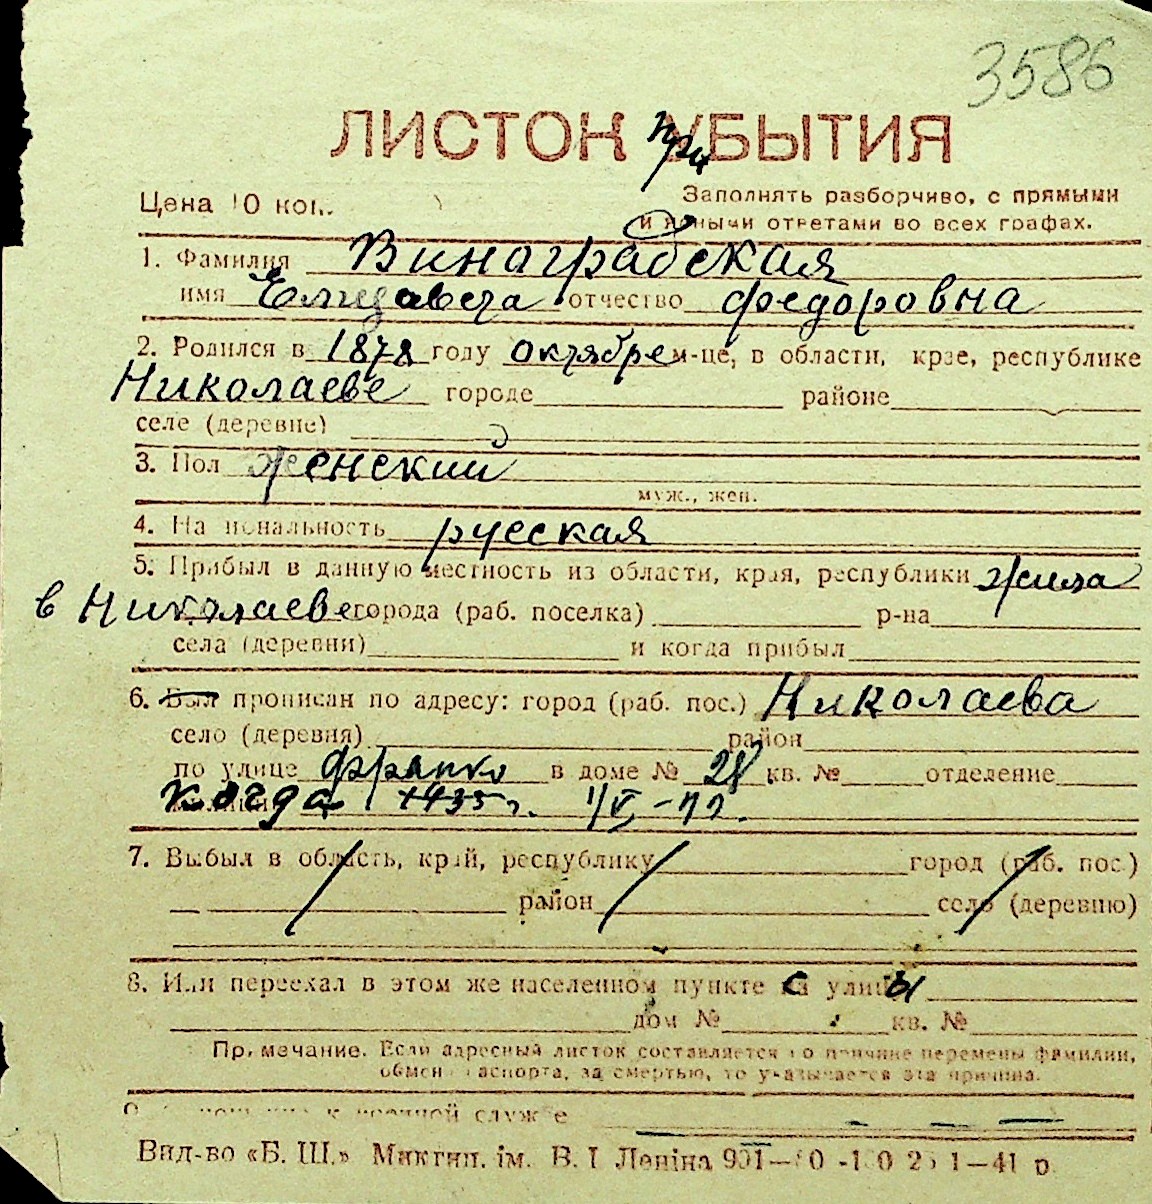 3586
ЛИСТОК при УБЫТИЯ
Цена 10 коп.
Заполнять разборчиво, с прямыми
и ясными ответами во всех графах.
1. Фамилия Виноградская
имя Елизавета отчество Федоровна
2. Родился в 1878 году октябре м-це, в области, крае, республике
Николаеве городе районе
селе (деревне)
3. Пол женский
муж., жен.
4. Национальность русская
5. Прибыл в данную местность из области, края, республики жила
в Николаеве города (раб. поселка) р-на
села (деревни) и когда прибыл
6. Был прописан по адресу: город (раб. пос.) Николаева
село (деревня) район
по улице Франко в доме № 28 кв. № отделение
когда
7. Выбыл в область, край, республику город (раб. пос.)
район село (деревню)
8. Или переехал в этом же населенном пункте с улицы
дом № кв. №
Примечание. Если адресный листок составляется по причине перемены фамилии,
обмена паспорта, за смертью, то указывается эта причина.
к военной службе
Вид-во «Б. Ш.» Миктип. ім. В. І Леніна